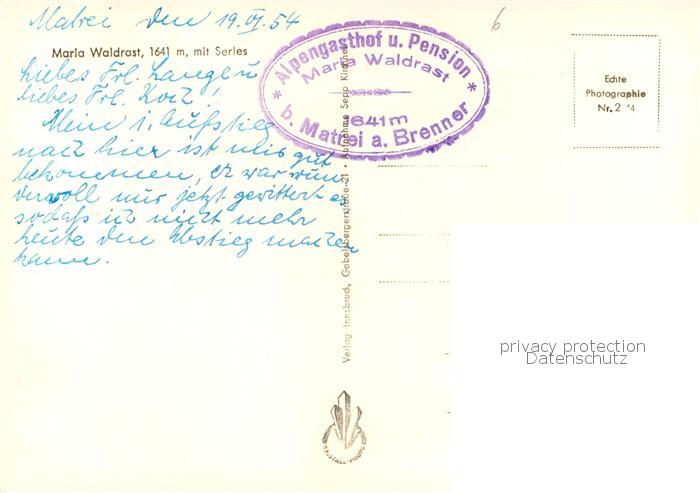 Matrei den 19.VI.54
6
Maria Waldrast, 1641 m, mit Serles
Alpengasthof u. Pension
Maria Waldrast
1641m
b. Matrei a. Brenner
Echte
Photographie
Nr. 2 4
Liebes Frl. Lange u
liebes Frl. Kotz!
Mein 1. Aufstieg
nach hier ist mir gut
bekommen, er war wun-
dervoll nur jetzt gewittert es
sodaß ich nicht mehr
heute den Abstieg machen
kann.
Verlag Innsbruck, Gabelsbergerstraße 21 • Aufnahme Sepp
privacy protection
Datenschutz